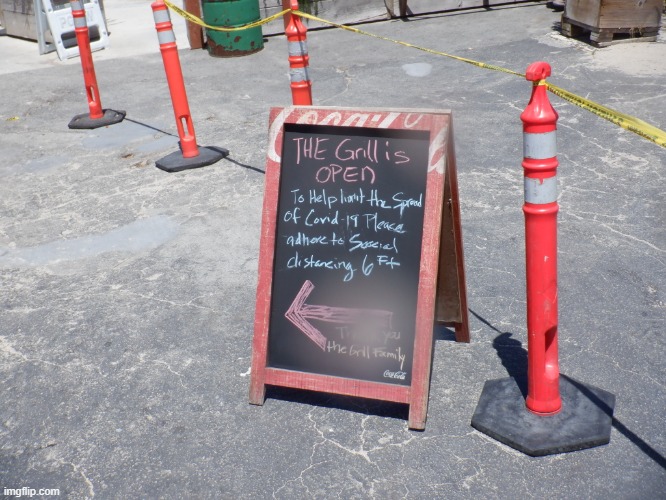 Coca-Cola
THE Grill is
OPEN
To Help limit the Spread
of Covid-19 Please
adhere to Soscial
distancing. 6 Ft
Thank you
the Grill Family
Coca-Cola
imgflip.com